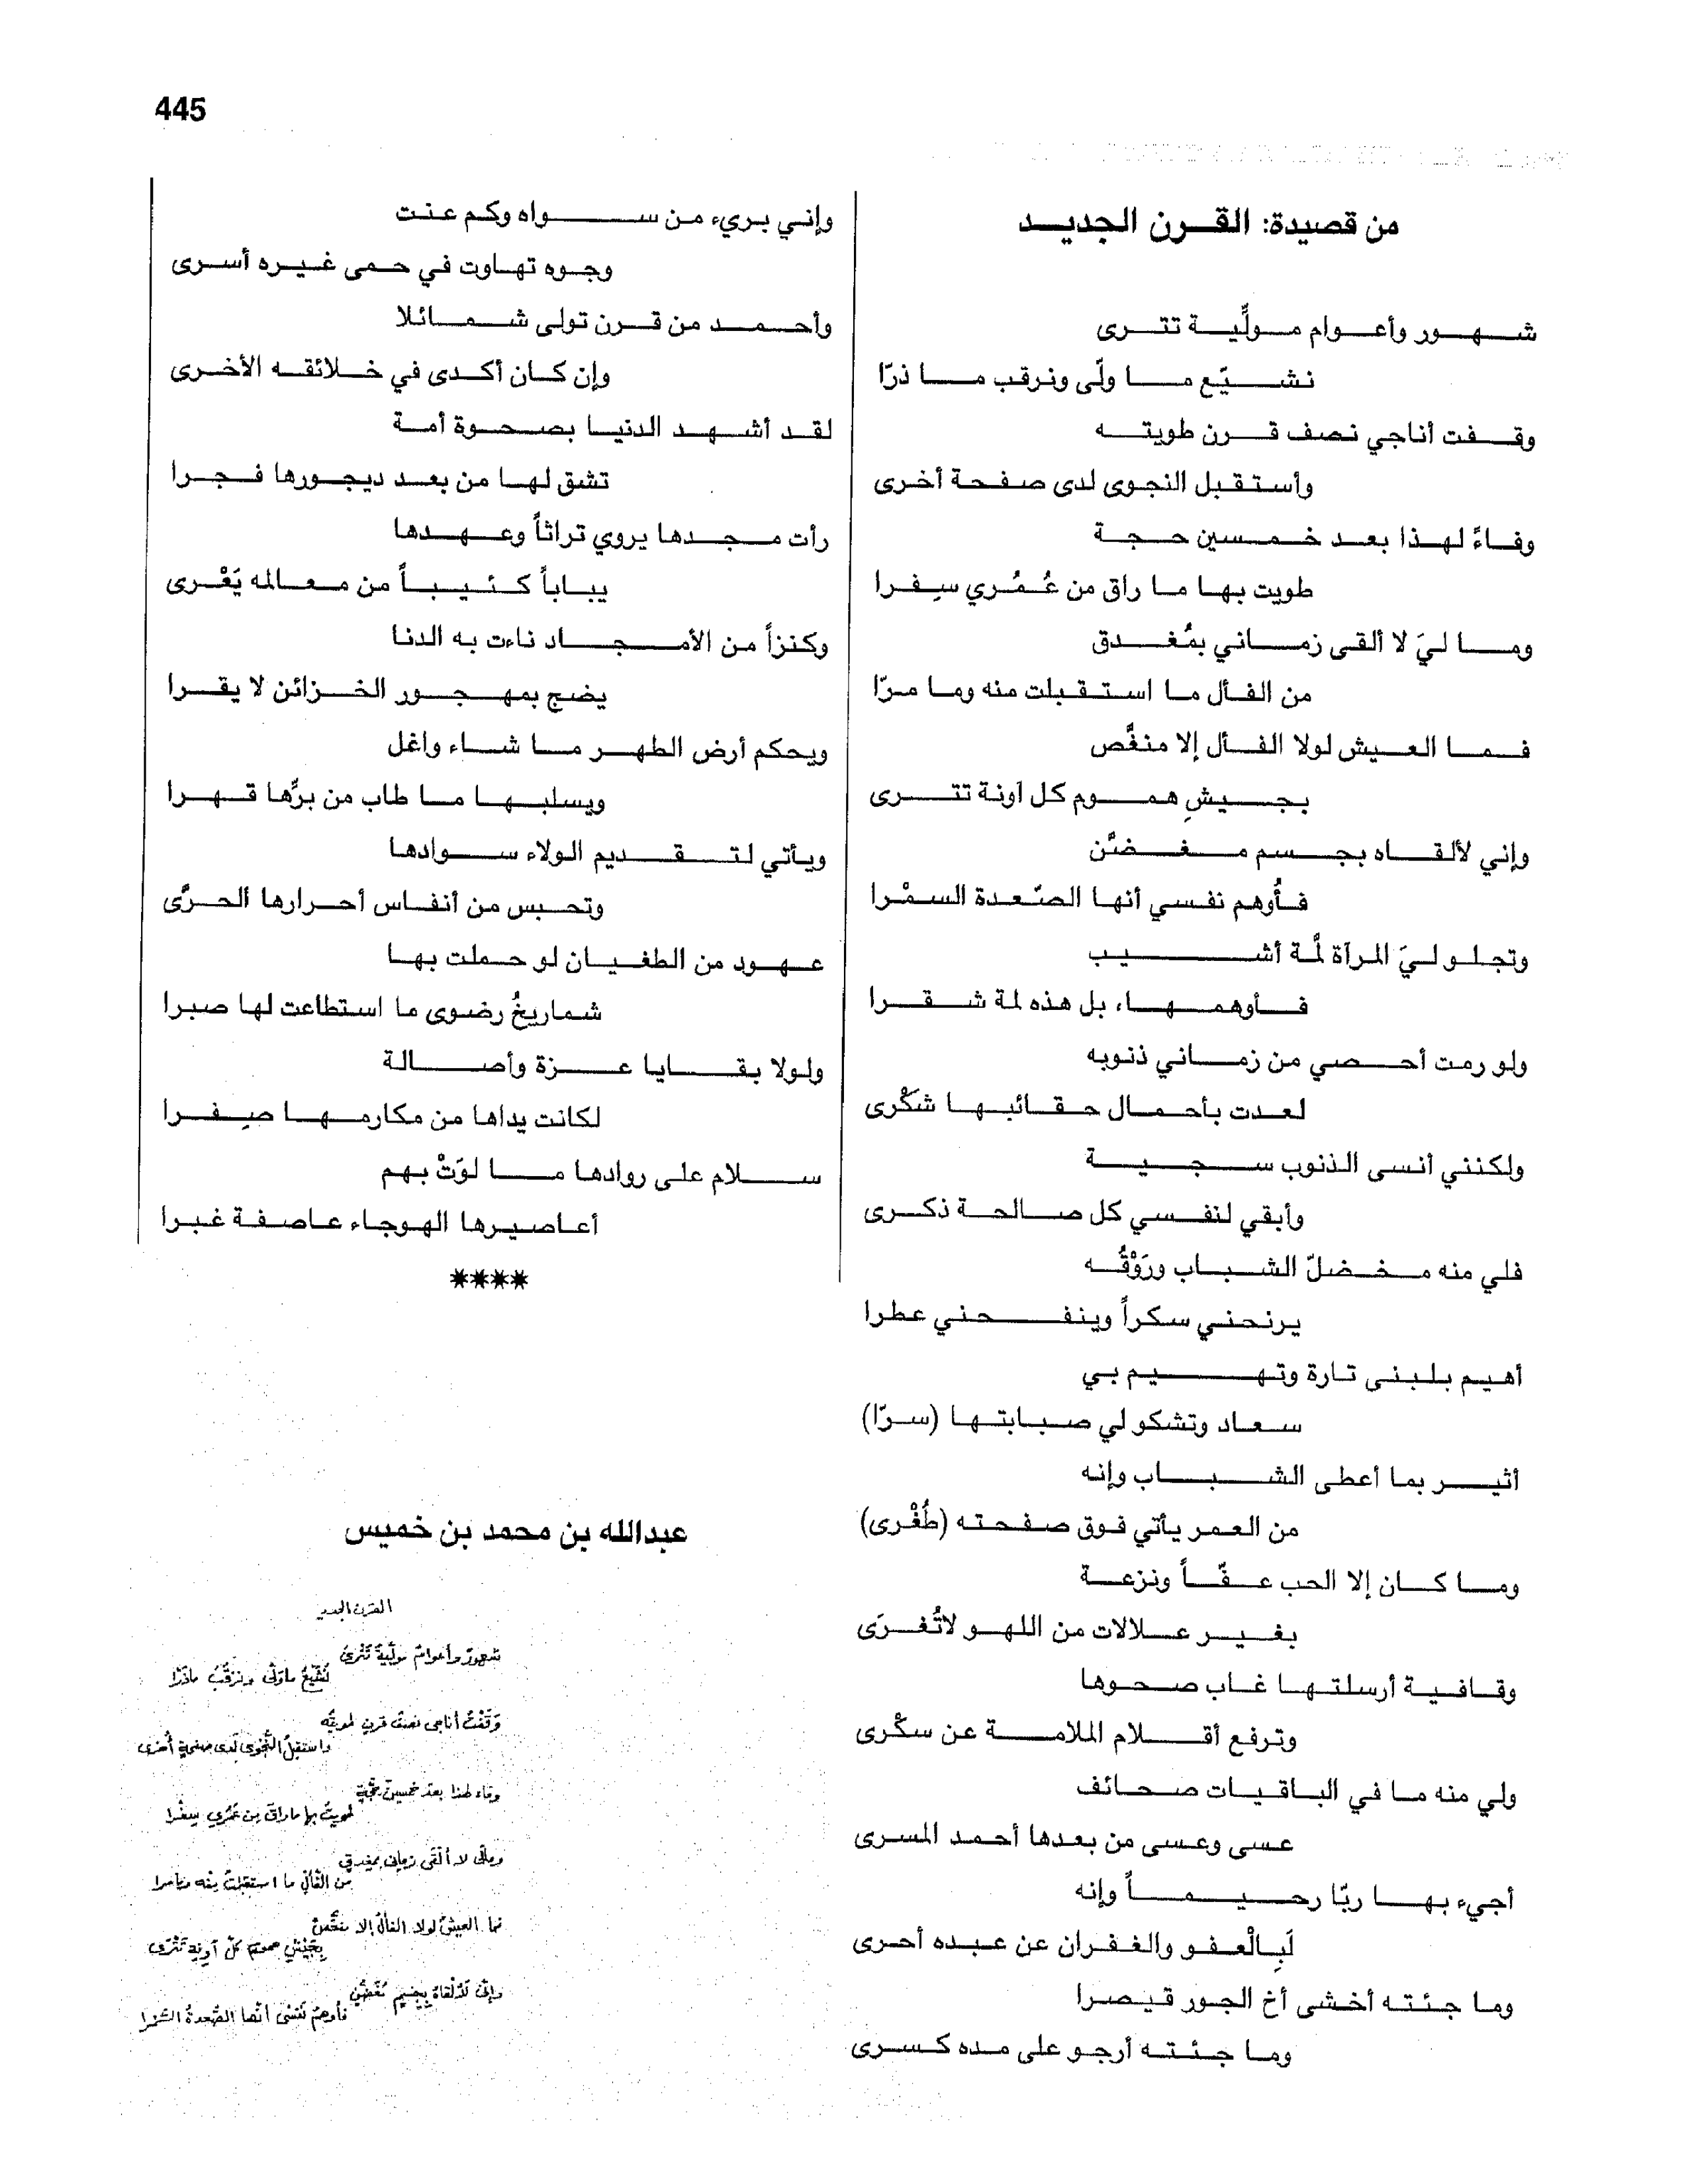 445
من قصيدة: القرن الجديد
شهور وأعوام مولِّية تترى
نشيّع ما ولّى ونرقب ما ذرّا
وقفت أناجي نصف قرن طويته
وأستقبل النجوى لدى صفحة أخرى
وفاءً لهذا بعد خمسين حجة
طويت بها ما راق من عُمُري سِفرا
وما ليَ لا ألقى زماني بمُغدق
من الفأل ما استقبلت منه وما مرّا
فما العيش لولا الفأل إلا منغَّص
بجيشِ هموم كل آونة تترى
وإني لألقاه بجسم مغضَّن
فأُوهم نفسي أنها الصّعدة السمْرا
وتجلو ليَ المرآة لمَّة أشيب
فأوهمها، بل هذه لمة شقرا
ولو رمت أحصي من زماني ذنوبه
لعدت بأحمال حقائبها شكْرى
ولكنني أنسى الذنوب سجية
وأبقي لنفسي كل صالحة ذكرى
فلي منه مخضلّ الشباب ورَوْقُه
يرنحني سكراً وينفحني عطرا
أهيم بلبنى تارة وتهيم بي
سعاد وتشكو لي صبابتها (سرّا)
أثير بما أعطى الشباب وإنه
من العمر يأتي فوق صفحته (طُغْرى)
وما كان إلا الحب عفّاً ونزعة
بغير علالات من اللهو لاتُغرَى
وقافية أرسلتها غاب صحوها
وترفع أقلام الملامة عن سكْرى
ولي منه ما في الباقيات صحائف
عسى وعسى من بعدها أحمد المسرى
أجيء بها ربّا رحيماً وإنه
لَبِالْعفو والغفران عن عبده أحرى
وما جئته أخشى أخ الجور قيصرا
وما جئته أرجو على مده كسرى
وإني بريء من سواه وكم عنت
وجوه تهاوت في حمى غيره أسرى
وأحمد من قرن تولى شمائلا
وإن كان أكدى في خلائقه الأخرى
لقد أشهد الدنيا بصحوة أمة
تشق لها من بعد ديجورها فجرا
رأت مجدها يروي تراثاً وعهدها
يباباً كئيباً من معالمه يَعْرى
وكنزاً من الأمجاد ناءت به الدنا
يضج بمهجور الخزائن لا يقرا
ويحكم أرض الطهر ما شاء واغل
ويسلبها ما طاب من برِّها قهرا
ويأتي لتقديم الولاء سوادها
وتحبس من أنفاس أحرارها الحرَّى
عهود من الطغيان لو حملت بها
شماريخُ رضوى ما استطاعت لها صبرا
ولولا بقايا عزة وأصالة
لكانت يداها من مكارمها صِفرا
سلام على روادها ما لوَتْ بهم
أعاصيرها الهوجاء عاصفة غبرا
****
عبدالله بن محمد بن خميس
القرن الجديد
شهورٌ وأعوامٌ مولِّيةٌ تَتْرى
نُشَيِّعُ ماولّى ونرقُبُ ماذرّا
وَقَفْتُ أناجي نصفَ قرنٍ طويتُه
واستقبلُ النَّجوى لَدى صفحةٍ أُخرى
وفاء لهذا بعدَ خمسينَ حِجَّةٍ
طويتُ بها ماراقَ مِن عُمُري سِفْرا
ومالي لا ألقَى زماني بمُغدقٍ
من الفألِ ما استقبلتُ مِنْه ومامرا
فما العيشُ لولا الفألُ إلا منغَّصٌ
بِجَيْشِ همومٍ كلَّ آونةٍ تَتْرَى
وإنّي لألقاهُ بِجِسمٍ مُغَضَّنٍ
فأُوهِمُ نَفْسي أنّها الصَّعدةُ السَّمْرا